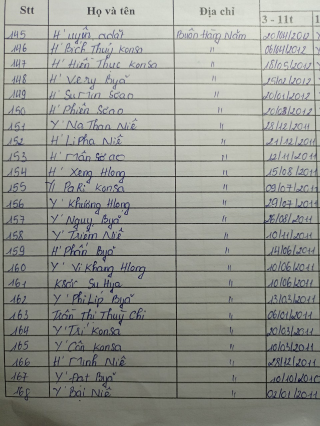 Stt Họ và tên Địa chỉ 3 - 11t 1
145 H' uyên adơl Buôn Hằng Năm 20/04/2012
146 H' Bích Thuỷ Konsa " 06/04/2012
147 H' Hiền Thục Konsa " 18/05/2012
148 H' Very Byă " 25/02/2012
149 H' Su Min Sđao " 20/01/2012
150 H' Phiên Sđao " 20/03/2012
151 Y' Na Than Niê " 28/12/2011
152 H' Lipha Niê " 21/12/2011
153 H' Mân " 12/11/2011
154 H' Xeng Hlong " 15/08/2011
155 Y Pa Ri Konsa " 09/07/2011
156 Y' Khương Hlong " 29/07/2011
157 Y' Nguy Byă " 26/08/2011
158 Y' Triêm Niê " 10/11/2011
159 H' Phấn Byă " 14/06/2011
160 Y' Vi Khang Hlong " 10/06/2011
161 Ksơr Su Hya " 10/06/2011
162 Y' Phi Líp Byă " 13/03/2011
163 Trần Thị Thuỳ Chi " 06/01/2011
164 Y' Trí Konsa " 20/03/2011
165 Y' Côn Konsa " 10/03/2011
166 H' Minh Niê " 28/12/2011
167 Y' Đạt Byă " 10/10/201
168 Y' Bái Niê " 02/01/2011